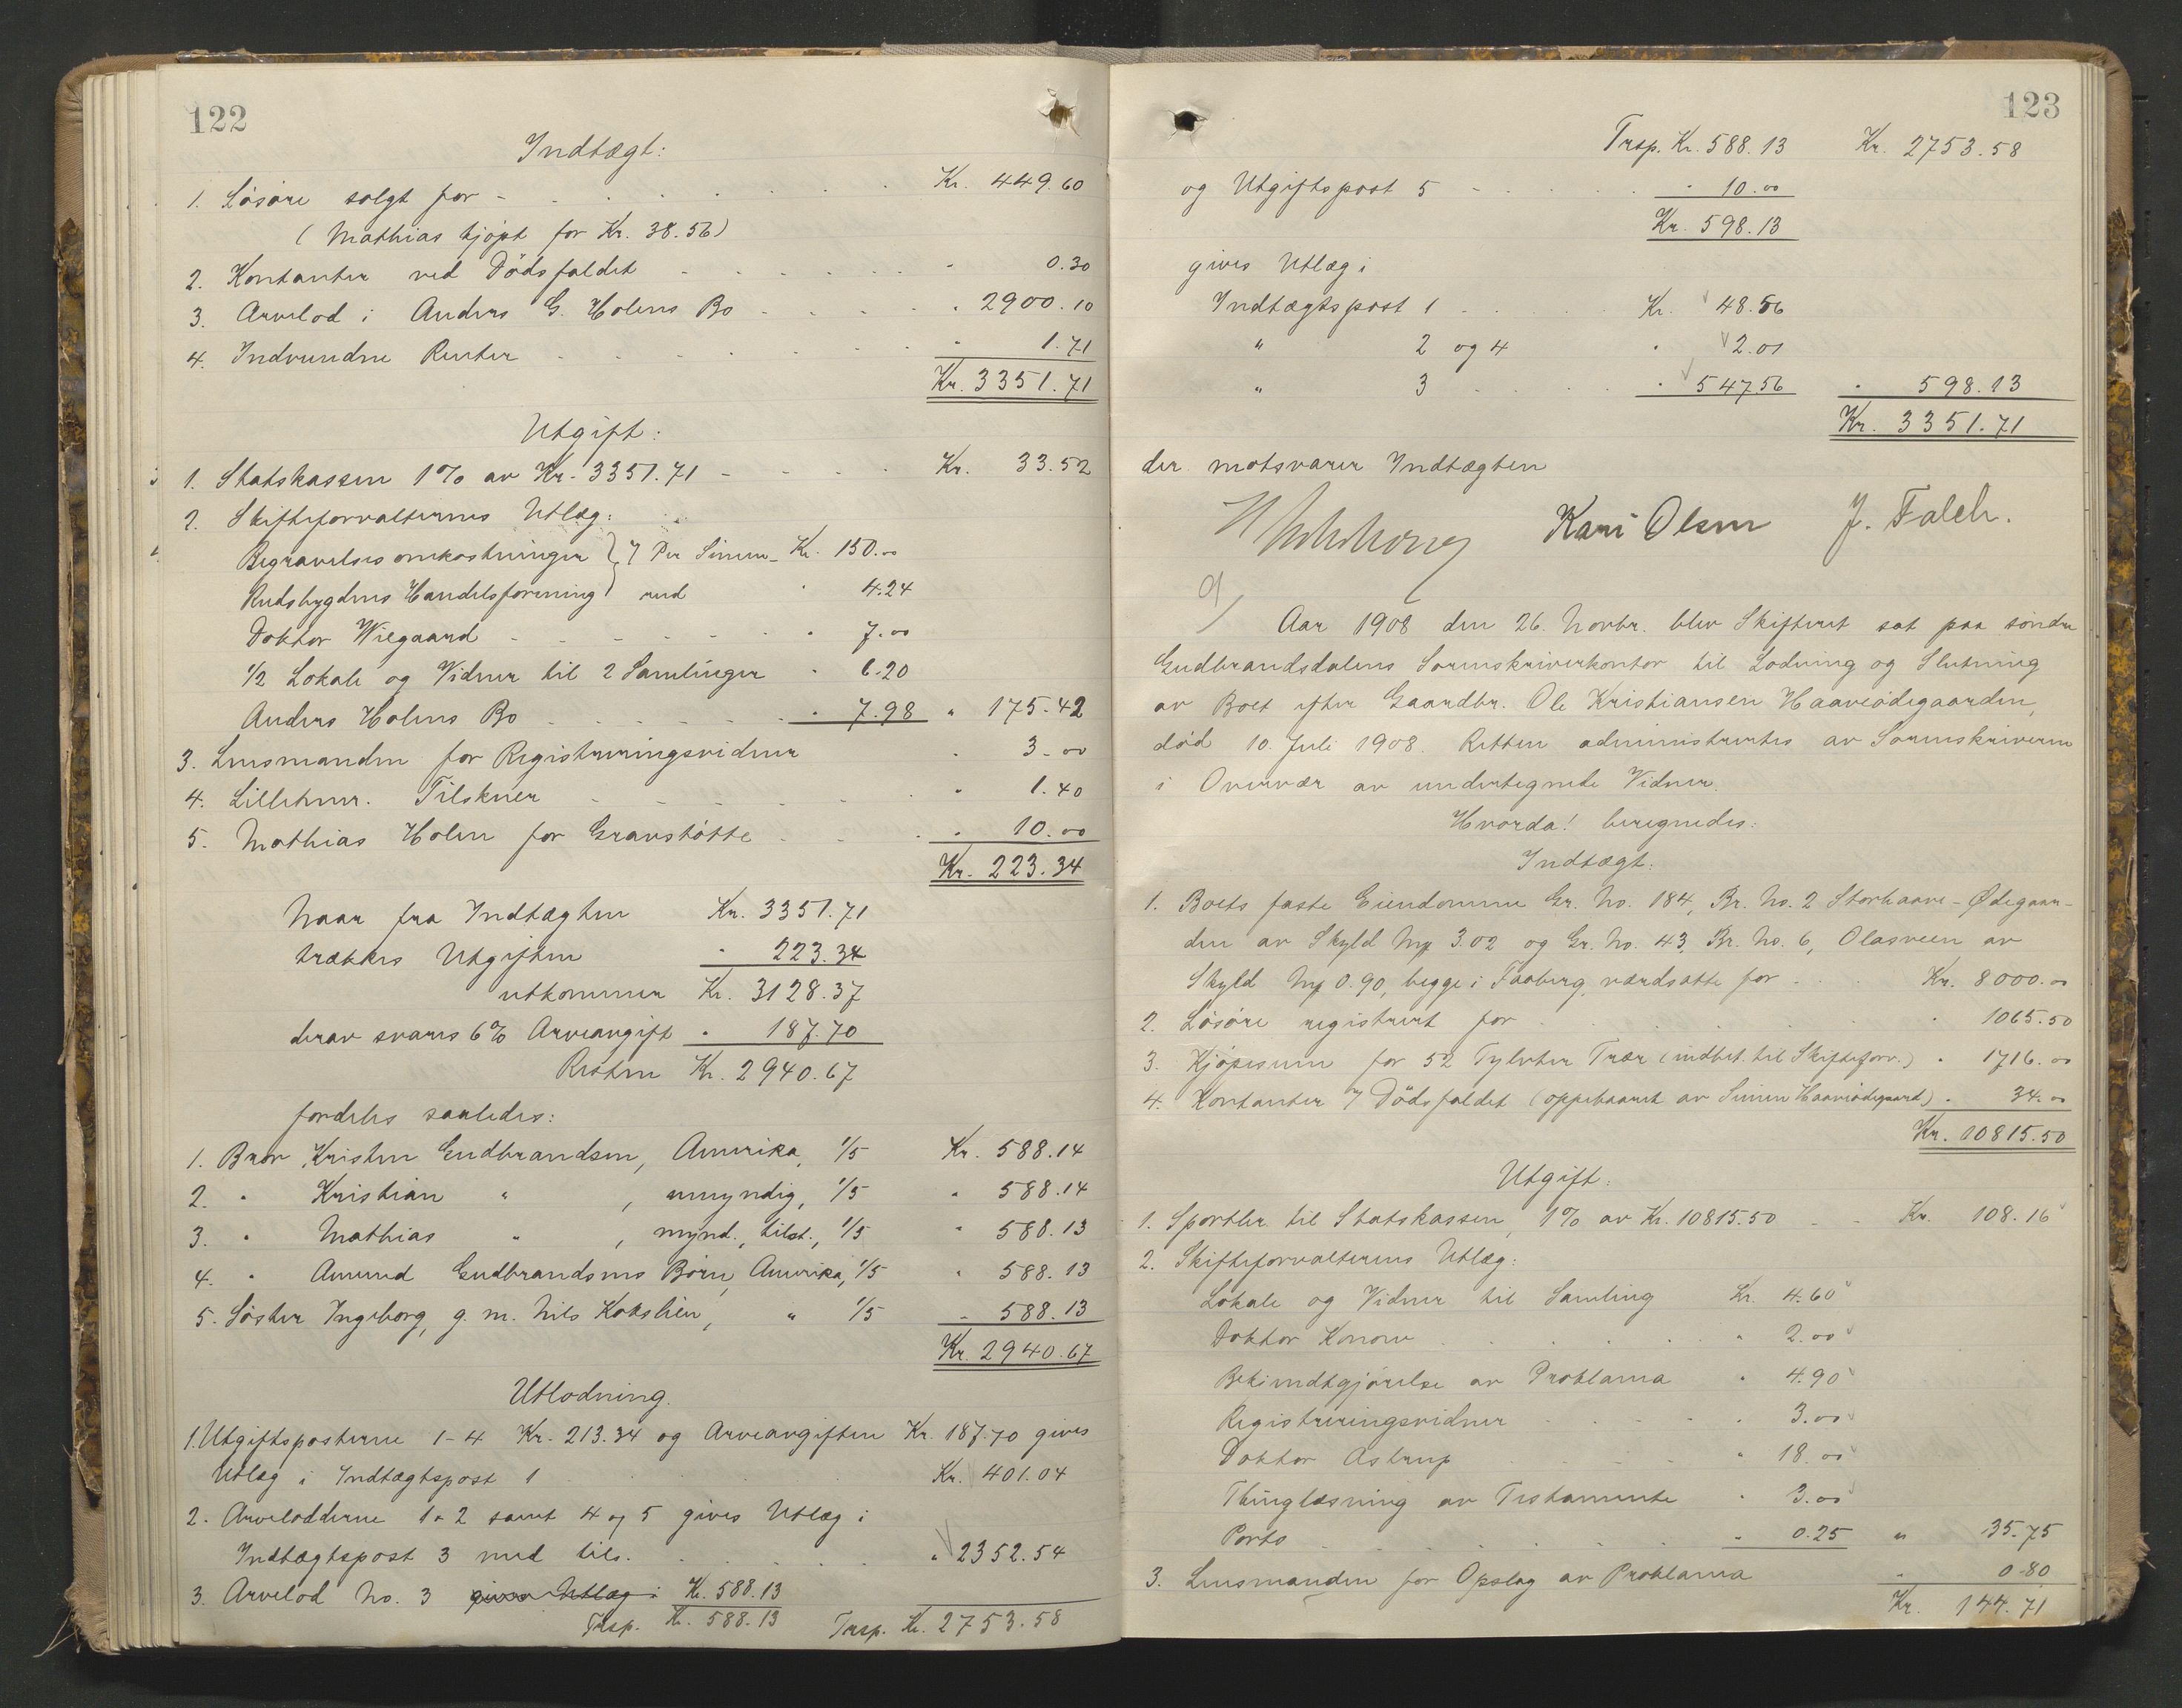 122
Indtægt:
1. Lösöre solgt for - Kr. 449.60
(Mathias kjöpt for Kr. 38.56)
2. Kontanter ved Dödsfaldet - " 0.30
3. Arvelod i Anders G. Holens Bo - " 2900.10
4. Indvundne Renter " 1.71
Kr. 3351.71
Utgift:
1. Statskassen 1% av Kr. 3351.71 - Kr. 33.52
2. Skifteforvalterens Utlæg:
Begravelsesomkostninger } 7 Per Simen- Kr. 150.00
Rudsbygdens Handelsforening } rud " 4.24
Doktor Wiegaard - " 7.00
1/2 Lokale og Vidner til 2 Samlinger " 6.20
Anders Holens Bo - " 7.98 " 175.42
3. Lensmanden for Registreringsvidner " 3.00
4. Lillehmr. Tilskuer - " 1.40
5. Mathias Holen for Gravstötte - " 10.00
Kr. 223.34
Naar fra Indtægten Kr. 3351.71
trækkes Utgiften " 223.34
utkommer Kr. 3128.37
derav svares 6% Arveavgift " 187.70
Resten Kr. 2940.67
fordeles saaledes:
1. Bror Kristen Gudbrandsen, Amerika, 1/5 Kr. 588.14
2. " Kristian " , umyndig, 1/5 " 588.14
3. " Mathias " , mynd., tilst., 1/5 " 588.13
4. " Amund Gudbrandsens Börn, Amerika, 1/5 " 588.13
5. Söster Ingeborg, g. m. Nils Kokslien, " 1/5 " 588.13
Kr. 2940.67
Utlodning.
1. Utgiftsposterne 1-4 Kr. 213.34 og Arveavgiften Kr. 187.70 gives
Utlæg i Indtægtspost 1 Kr. 401.04
2. Arvelodderne 1 & 2 samt 4 og 5 gives Utlæg i
Indtægtspost 3 med tils. " 2352.54
3. Arvelod No. 3 gives Utlæg i Kr. 588.13
Trsp. Kr. 588.13 Trsp. Kr. 2753.58
123
Trsp. Kr. 588.13 Kr. 2753.58
og Utgiftspost 5 - " 10.00
Kr. 598.13
gives Utlæg i
Indtægtspost 1 Kr. 48.56
" 2 og 4 " 2.01
" 3 " 547.56 " 598.13
Kr. 3351.71
der motsvarer Indtægten
Kari Olsen J. Falch.
9/
Aar 1908 den 26. Novbr. blev Skifteret sat paa söndre
Gudbrandsdalens Sorenskriverkontor til Lodning og Slutning
av Boet efter Gaardbr. Ole Kristiansen Haaveödegaarden,
död 10. Juli 1908. Retten administrertes av Sorenskriveren
i Overvær av undertegnede Vidner.
Hvorda! beregnedes:
Indtægt.
1. Boets faste Eiendomme Gr. No. 184, Br. No. 2 Storhaave-Ødegaar-
den av Skyld Mk 3.02 og Gr. No. 43, Br. No. 6, Olasveen av
Skyld Mk 0.90, begge i Faaberg, værdsatte for - Kr. 8000.00
2. Lösöre registrert for - " 1065.50
3. Kjöpesum for 52 Tylvter Trær (indbet. til Skifteforv.) " 1716.00
4. Kontanter 7 Dödsfaldet (oppebaaret av Simen Haaveödegaard) " 34.00
Kr. 10815.50
Utgift:
1. Sportler til Statskassen, 1% av Kr. 10815.50 - Kr. 108.16
2. Skifteforvalterens Utlæg:
Lokale og Vidner til Samling Kr. 4.60
Doktor Konow " 2.00
Bekjendtgjörelse av Proklama " 4.90
Registreringsvidner " 3.00
Doktor Astrup " 18.00
Thinglæsning av Testamente " 3.00
Porto " 0.25 " 35.75
3. Lensmanden for Opslag av Proklama " 0.80
Kr. 144.71